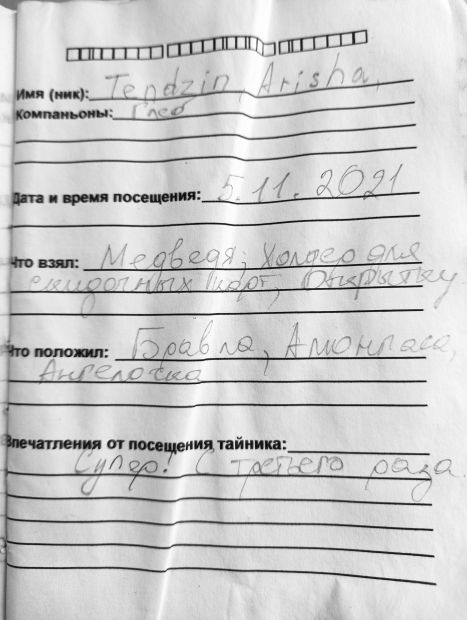 Имя (ник): Tendzin, Arisha,
Компаньоны: Глеб
Дата и время посещения: 5.11.2021
Что взял: Медведя, Холдер для
скидочных карт, Открытку
Что положил: Бравла, Амонгаса,
Ангелочка
Впечатления от посещения тайника:
Супер! С третьего раза.